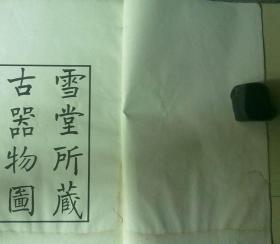 雪堂所蔵
古器物圖